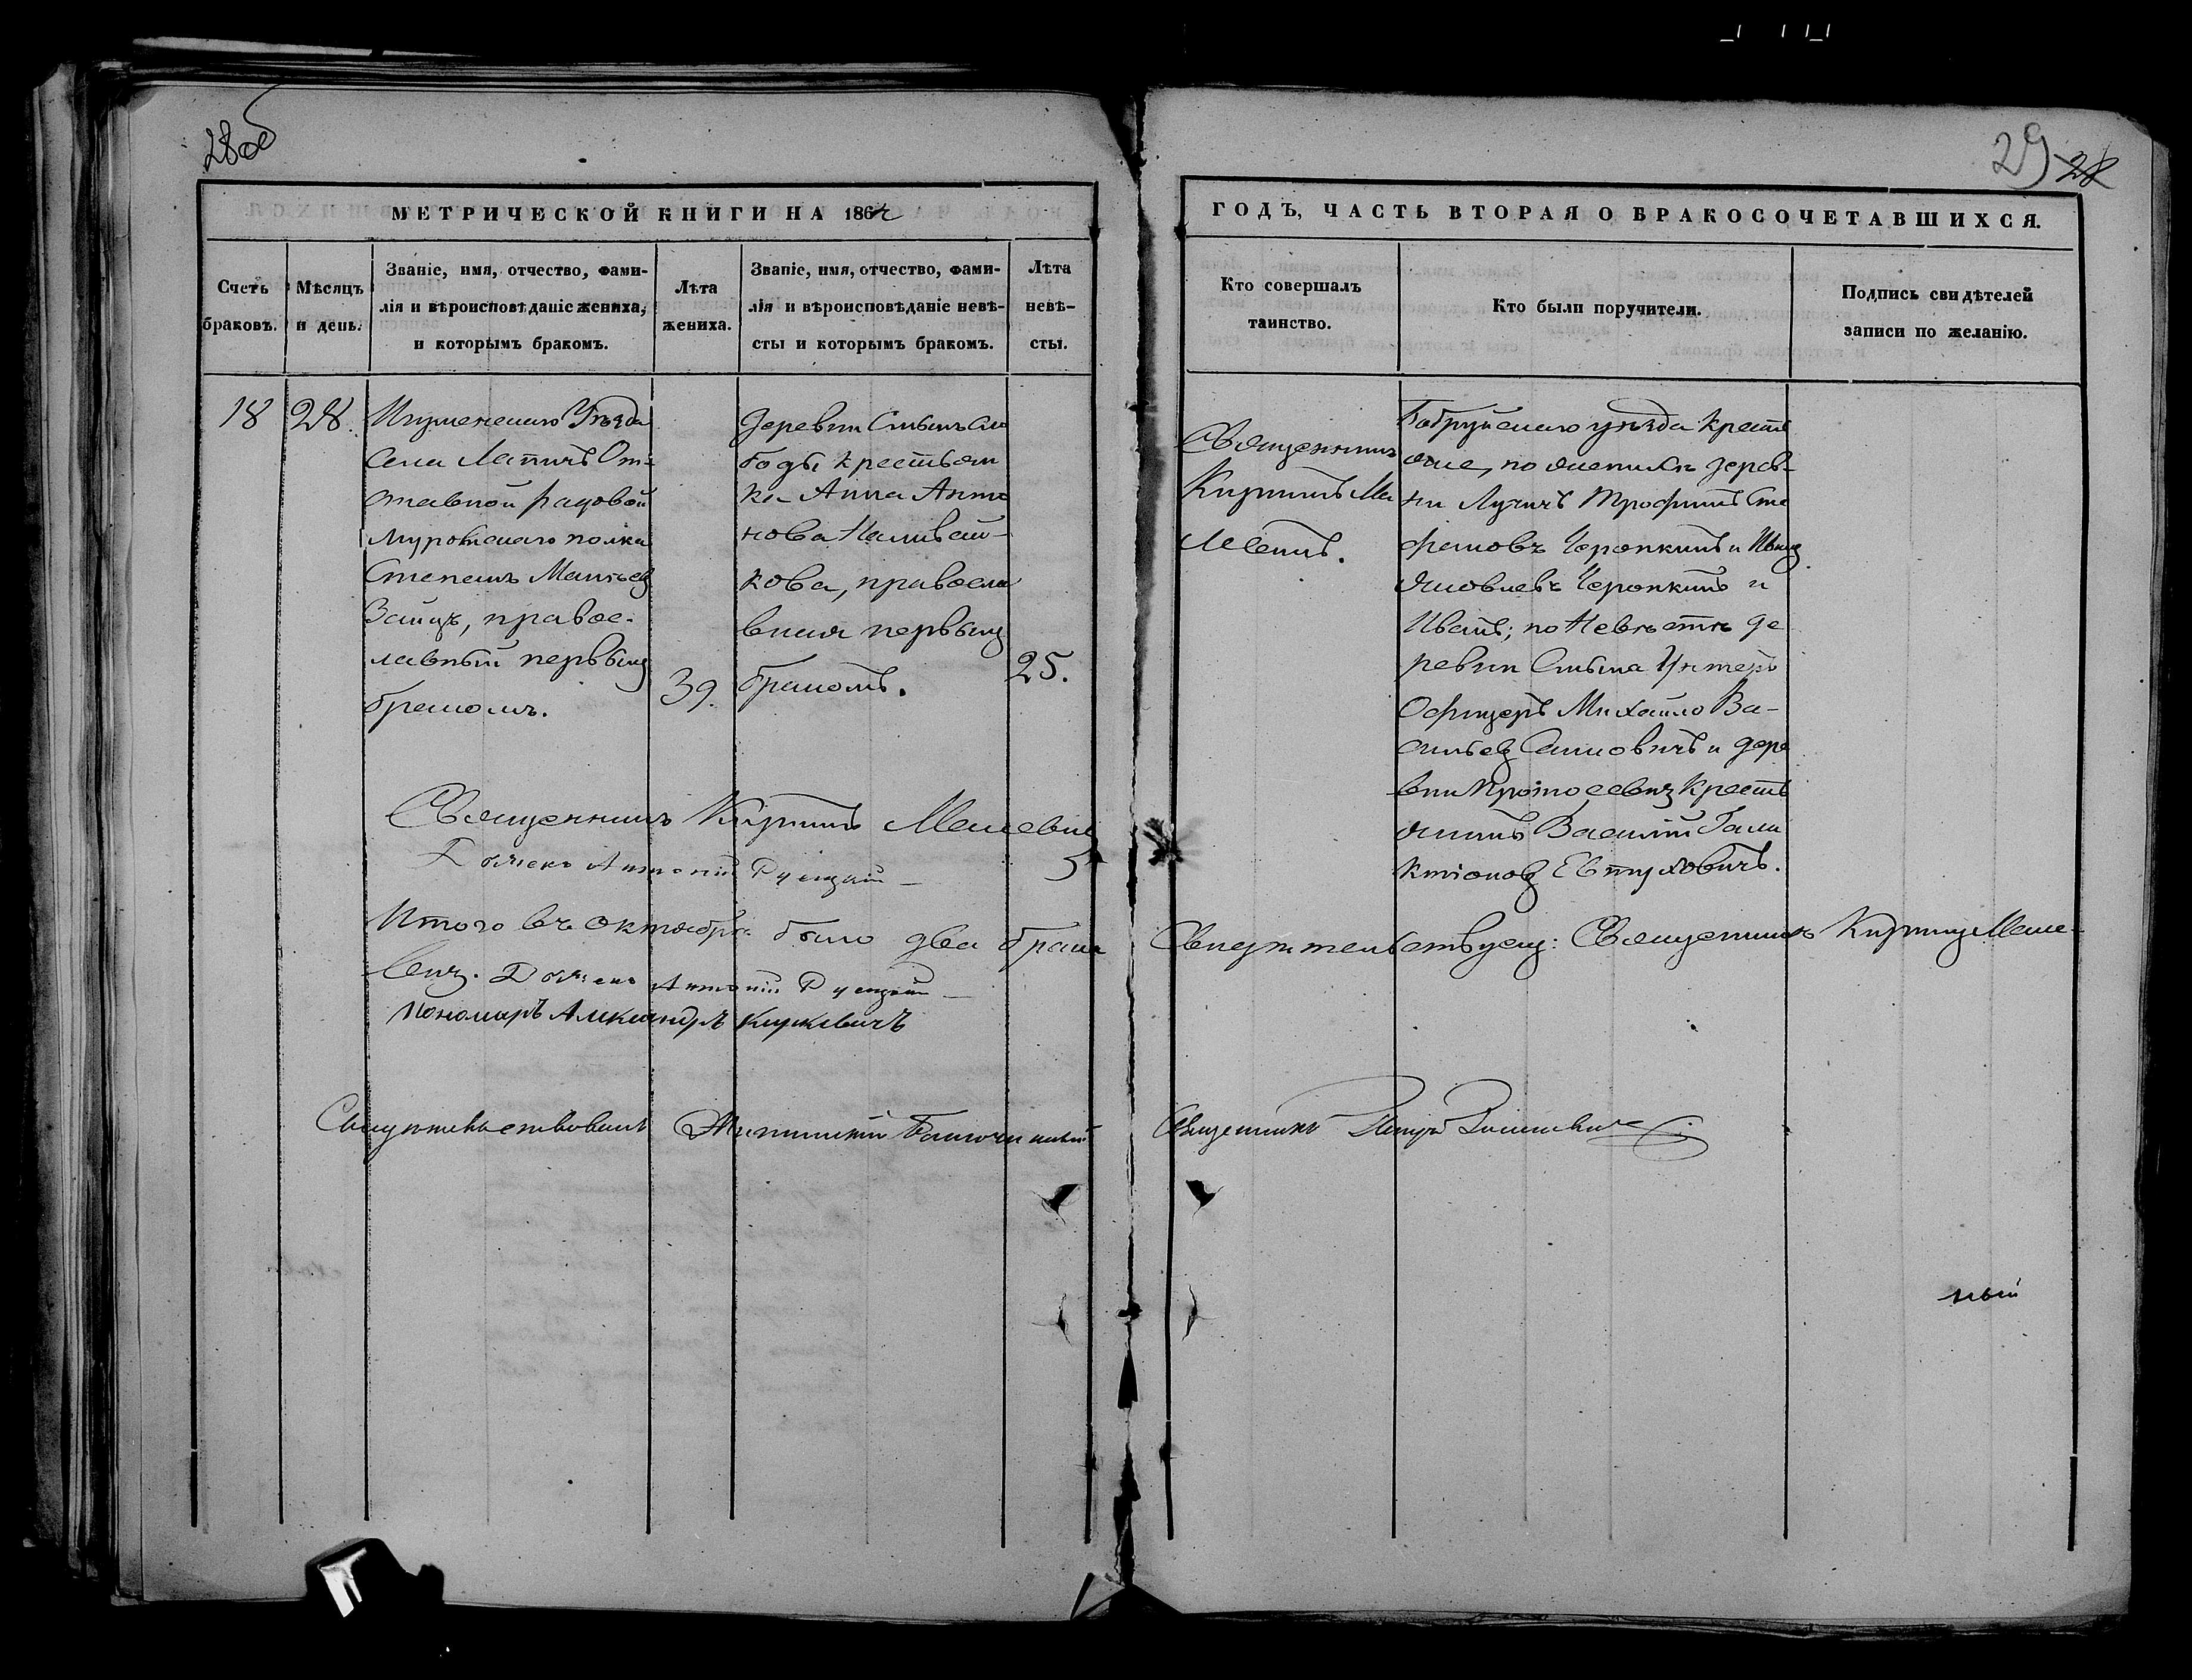 28об
29 28
МЕТРИЧЕСКОЙ КНИГИ НА 186
ГОДЪ, ЧАСТЬ ВТОРАЯ О БРАКОСОЧЕТАВШИХСЯ.
Счетъ
браковъ.
Мѣсяцъ
и день.
Званіе, имя, отчество, фами-
лія и вѣроисповѣданіе жениха,
и которымъ бракомъ.
Лѣта
жениха.
Званіе, имя, отчество, фами-
лія и вѣроисповѣданіе невѣ-
сты и которымъ бракомъ.
Лѣта
невѣ-
сты.
Кто совершалъ
таинство.
Кто были поручители.
Подпись свидѣтелей
записи по желанію.
18
28.
Игуменскаго Уѣзда
Села Лапичъ От-
ставной рядовой
полка
Степанъ
Заяцъ, правос-
лавный первымъ
бракомъ.
39.
Деревни Слои
боды крестьян
ка Анна Анто
нова Наливай-
кова, правосла
вная первымъ
бракомъ.
25.
Священникъ
Кириллъ Ма
Бобруйскаго уѣзда Кресть
яне, по женихѣ дерев-
ни Лучичъ Трофимъ Сте
фановъ Черопкинъ и
Яковлевъ Черопкинъ и
Иванъ; по Невѣстѣ де
ревни Унтеръ
Офицеръ Михайло Ва-
сильевъ и дере
вни Кресть
янинъ Василій Гала
ктіоновъ Евтуховичъ.
Священникъ Кириллъ
Дьячекъ Антоній Русецкій
Итого въ Октябрѣ было два брака
Свидетельствуемъ: Священникъ Кириллъ Маце-
вичъ. Дьячекъ Антоній Русецкій
Пономарь Александръ Кушкевичъ
Свидѣтельствовалъ Благочинный
Священникъ Петръ
ный